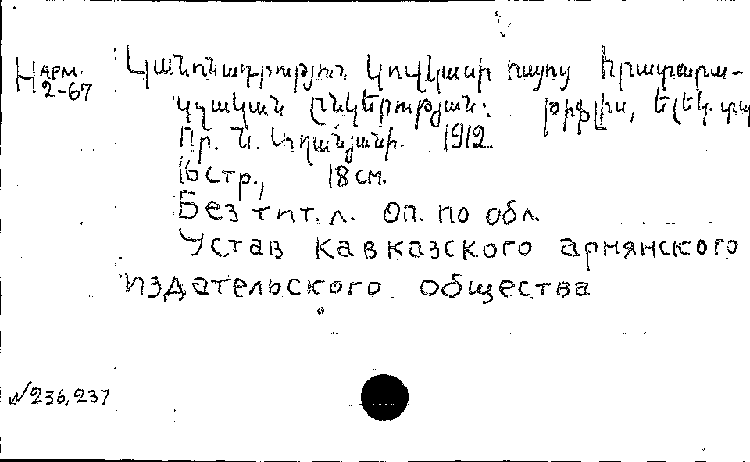 Нарм. 2-67
Կանոնադրութիւն Կովկասի հայոց հրատարա-
կչական ընկերութեան: Թիֆլիս, Էլեկ. տպ
Пр. Ն. Աղանյանի. 1912
16 стр., 18 см.
Без тит. л. Оп. по обл.
Устав Кавказского армянского
издательского общества
N 236, 237